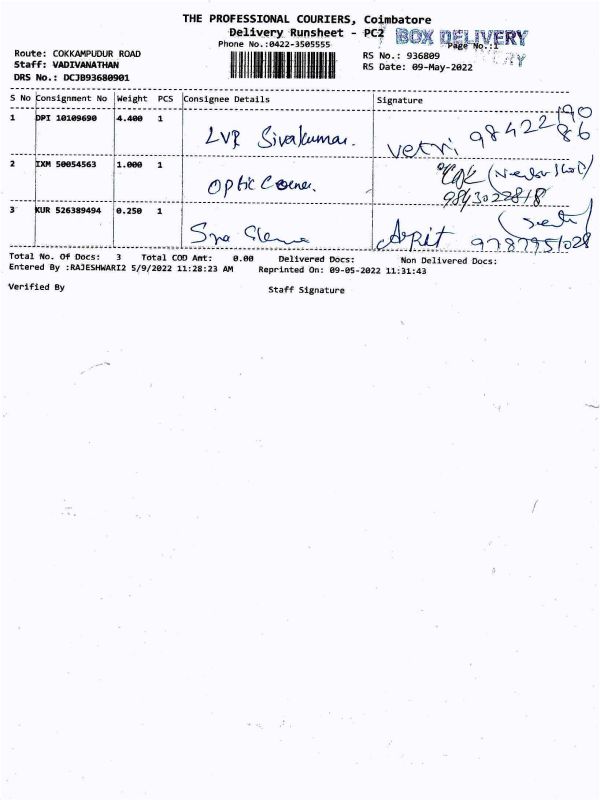 THE PROFESSIONAL COURIERS, Coimbatore
Delivery Runsheet - PC2 BOX DELIVERY
Phone No.:0422-3505555 Page No.:1
Route: COKKAMPUDUR ROAD RS No.: 936809
Staff: VADIVANATHAN RS Date: 09-May-2022
DRS No.: DCJB93680901
S No Consignment No Weight PCS Consignee Details Signature
1 DPI 10109690 4.400 1 LVR Sivakumar. Vetri 98422
2 IXM 50054563 1.000 1 Optic Corner. 9843022818
3 KUR 526389494 0.250 1 Arpit 9787951028
Total No. Of Docs: 3 Total COD Amt: 0.00 Delivered Docs: Non Delivered Docs:
Entered By :RAJESHWARI2 5/9/2022 11:28:23 AM Reprinted On: 09-05-2022 11:31:43
Verified By Staff Signature